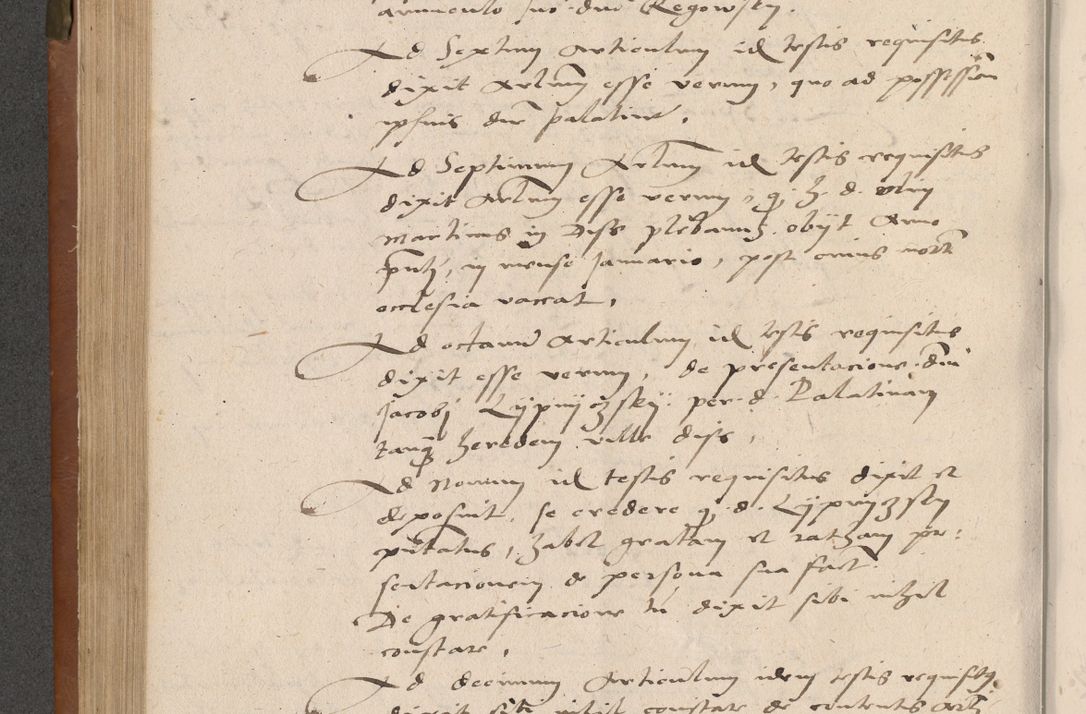 armuolo suo dno Regowsky.
Ad Sextum Articulum id testis requisitus
dixit Artlm esse verum, quo ad possessiom
ipsius dne palatine.
Ad Septimum Artlum id testis requisitus
dixit Artlum esse verum, q h. d. olim
Martinus in Diss plebanus obyt Anno
pnti, in mense Januario, post cuius morte
ecclesia vaccat.
Ad octavu Articulum id testis requisitus
dixit esse verum, de presentacione dni
Jacobj Lypnyczsky per d. Palatinam
tanq heredem ville diss.
Ad Nonum id testis requisitus dixit et
deposuit, se credere q d. Lypnyczsky
putatus, habet gratam et ratham pre:
sentacionem de persona sua fact
De gratificacione tn dixit sibi nihil
constare.
Ad decimum Articulum idem testis requisitus
dixit sibi nihil constare de contentis Artli